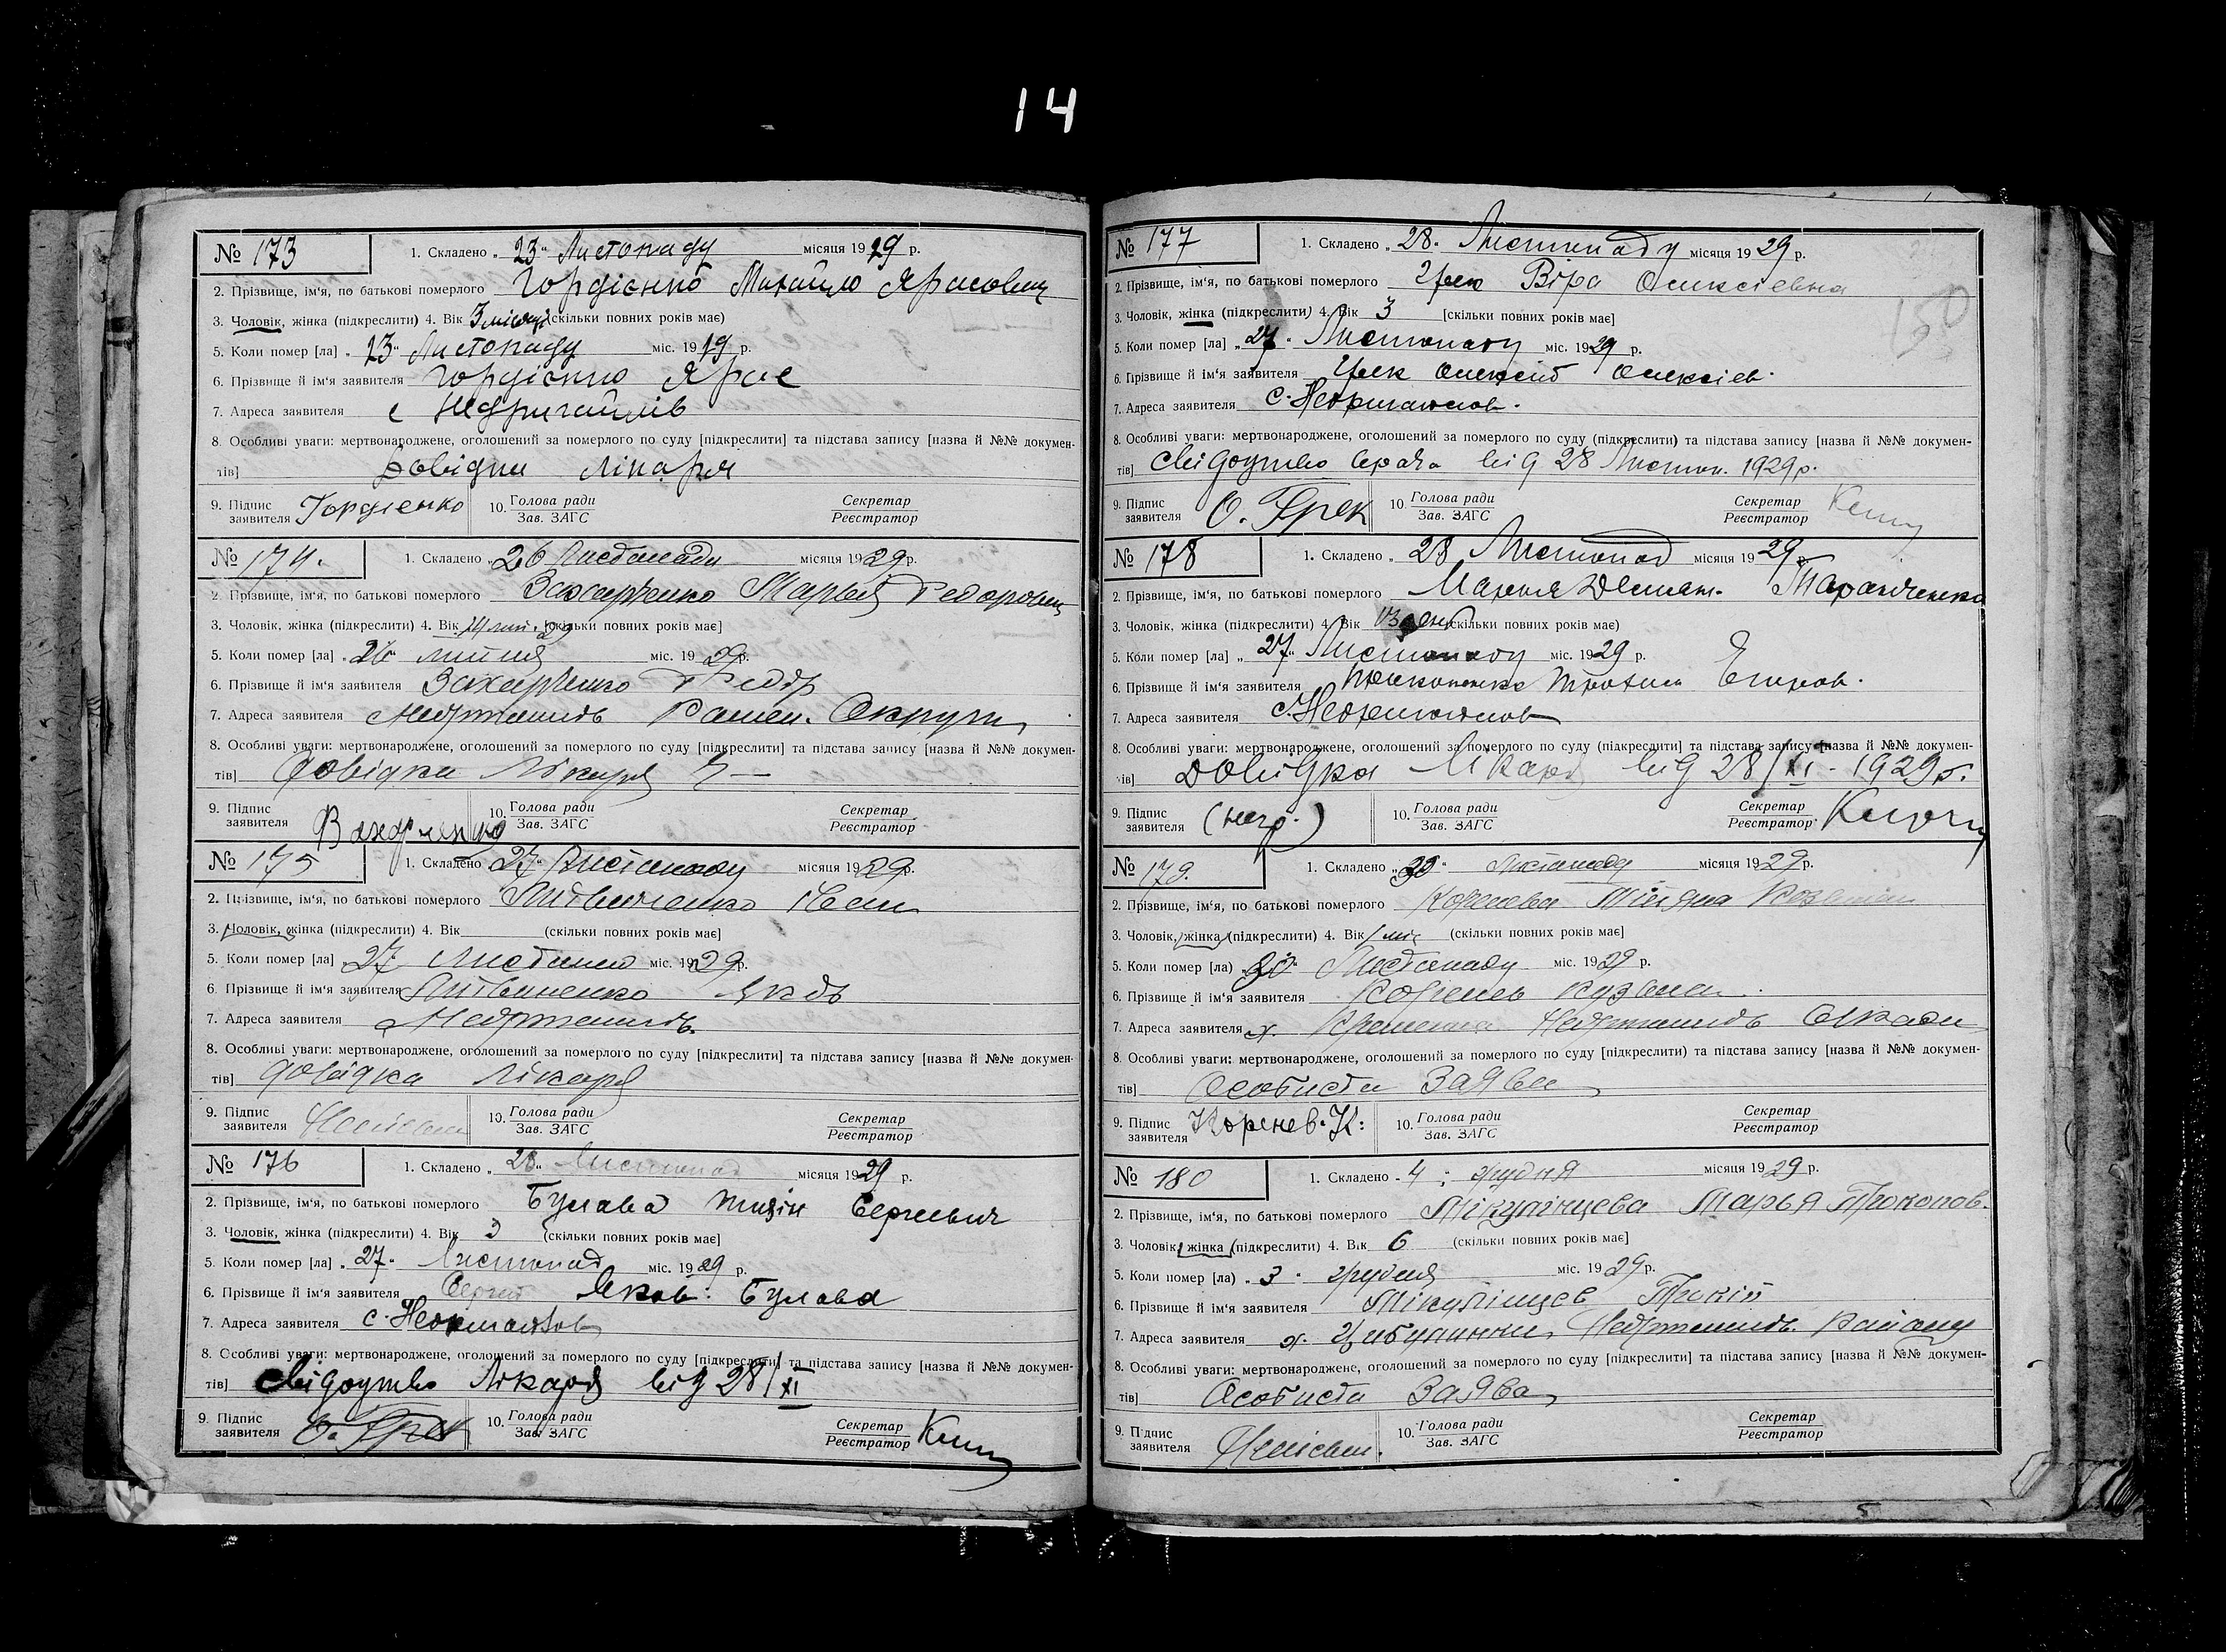 14
№ 173 1. Складено „ 23 “ Листопаду місяця 1929 р.
2. Прізвище, ім'я, по батькові померлого Гордієнко Михайло
3. Чоловік, жінка (підкреслити) 4. Вік 3 місяці (скільки повних років має)
5. Коли помер [ла] „ 23 “ Листопаду міс. 1929 р.
6. Прізвище й ім'я заявителя Гордієнко
7. Адреса заявителя с Недригайлів
8. Особливі уваги: мертвонароджене, оголошений за померлого по суду [підкреслити] та підстава запису [назва й №№ докумен-
тів] Довідка лікаря
9. Підпис заявителя Гордіенко 10. Голова ради Зав. ЗАГС Секретар Реєстратор
№ 174. 1. Складено „ 26 Листопаду місяця 1929 р.
2. Прізвище, ім'я, по батькові померлого Захарченко Марья Федоровна
3. Чоловік, жінка (підкреслити) 4. Вік (скільки повних років має]
5. Коли помер [ла] „ 26 “ міс. 1929 р.
6. Прізвище й ім'я заявителя Захарченко Федір
7. Адреса заявителя Недригайлів Округи
8. Особливі уваги: мертвонароджене, оголошений за померлого по суду [підкреслити] та підстава запису [назва й №№ докумен-
тів] Довідка Лікаря
9. Підпис заявителя 10. Голова ради Зав. ЗАГС Секретар Реєстратор
№ 175 1. Складено 27 “ Листопаду місяця 1929 р.
2. Прізвище, ім'я, по батькові померлого Литвиненко Іван
3. Чоловік, жінка (підкреслити) 4. Вік (скільки повних років має]
5. Коли помер [ла] 27 Листопад міс. 1929 р.
6. Прізвище й ім'я заявителя Литвиненко Яків
7. Адреса заявителя Недригайлів
8. Особливі уваги: мертвонароджене, оголошений за померлого по суду [підкреслити] та підстава запису [назва й №№ докумен-
тів] Довідка Лікаря
9. Підпис заявителя 10. Голова ради Зав. ЗАГС Секретар Реєстратор
№ 176 1. Складено „ 28 “ Листопад місяця 1929 р.
2. Прізвище, ім'я, по батькові померлого Булава Сергиевич
3. Чоловік, жінка (підкреслити) 4. Вік 3 (скільки повних років має]
5. Коли помер [ла] „ 27 “ Листопад міс. 1929 р.
6. Прізвище й ім'я заявителя Сергій Яков. Булава
7. Адреса заявителя с. Недригайлов
8. Особливі уваги: мертвонароджене, оголошений за померлого по суду [підкреслити] та підстава запису [назва й №№ докумен-
тів] свідоцтво Лікаря від 28/XI
9. Підпис заявителя О. Грек 10. Голова ради Зав. ЗАГС Секретар Реєстратор
№ 177 1. Складено „ 28 “ Листопаду місяця 1929 р.
2. Прізвище, ім'я, по батькові померлого Грек Віра Олексіевна
3. Чоловік, жінка (підкреслити) 4. Вік 3 [скільки повних років має]
150
5. Коли помер [ла] „ 27 “ Листопаду міс. 1929 р.
6. Прізвище й ім'я заявителя Грек Олексій Олексіев.
7. Адреса заявителя с. Недригайлов.
8. Особливі уваги: мертвонароджене, оголошений за померлого по суду (підкреслити) та підстава запису [назва й №№ докумен-
тів] свідоцтво врача від 28 Листоп. 1929 р.
9. Підпис заявителя О. Грек 10. Голова ради Зав. ЗАГС Секретар Реєстратор
№ 178 1. Складено „ 28 Листопад місяця 1929 р.
2. Прізвище, ім'я, по батькові померлого Демьян.
3. Чоловік, жінка (підкреслити) 4. Вік (скільки повних років має)
5. Коли помер [ла] „ 27 “ Листопаду міс. 1929 р.
6. Прізвище й ім'я заявителя Трохим Егоров.
7. Адреса заявителя с. Недригайлов
8. Особливі уваги: мертвонароджене, оголошений за померлого по суду (підкреслити] та підстава запису [назва й №№ докумен-
тів] Довідка Лікаря від 28/XI - 1929 р.
9. Підпис заявителя (негр.) 10. Голова ради Зав. ЗАГС Секретар Реєстратор
№ 179. 1. Складено „ 30 “ Листопаду місяця 1929 р.
2. Прізвище, ім'я, по батькові померлого Коренева
3. Чоловік, жінка (підкреслити) 4. Вік 1 міс (скільки повних років має]
5. Коли помер [ла) „ 30 “ Листопаду міс. 1929 р.
6. Прізвище й ім'я заявителя Коренев Кузьма
7. Адреса заявителя х. Недригайлів
8. Особливі уваги: мертвонароджене, оголошений за померлого по суду [підкреслити) та підстава запису [назва й №№ докумен-
тів] Особиста Заява
9. Підпис заявителя Коренев. К: 10. Голова ради Зав. ЗАГС Секретар Реєстратор
№ 180 1. Складено „ 4 “ грудня місяця 1929 р.
2. Прізвище, ім'я, по батькові померлого Мікулінцева Марья Прокопов.
3. Чоловік, жінка (підкреслити) 4. Вік 6 (скільки повних років має]
5. Коли помер [ла) „ 3 “ грудня міс. 1929 р.
6. Прізвище й ім'я заявителя Мікулінцев Прокіп
7. Адреса заявителя х. Недригайлів. Району
8. Особливі уваги: мертвонароджене, оголошений за померлого по суду [підкреслити] та підстава запису [назва й №№ докумен-
тів] Особиста Заява
9. Підпис заявителя 10. Голова ради Зав. ЗАГС Секретар Реєстратор